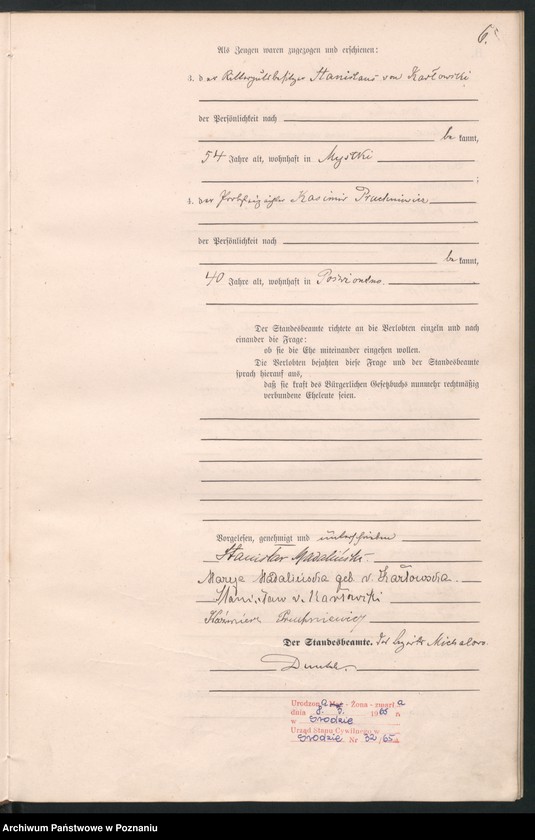 6.
Als Zeugen waren zugezogen und erschienen:
3. der Rittergutsbesitzer Stanislaus von Karłowski
der Persönlichkeit nach
be kannt,
54 Jahre alt, wohnhaft in Mystki
;
4. der Kasimir Pruchniewicz
der Persönlichkeit nach
be kannt,
40 Jahre alt, wohnhaft in
Der Standesbeamte richtete an die Verlobten einzeln und nach
einander die Frage:
ob sie die Ehe miteinander eingehen wollen.
Die Verlobten bejahten diese Frage und der Standesbeamte
sprach hierauf aus,
daß sie kraft des Bürgerlichen Gesetzbuchs nunmehr rechtmäßig
verbundene Eheleute seien.
Vorgelesen, genehmigt und unterschrieben
Stanisław Madaliński
Marya Madalińska geb. v. Karłowska.
Stanisław v. Karłowski
Kazimierz Pruchniewicz
Der Standesbeamte. des Bezirks
Urodzona - Żona - zmarła
dnia 1965 r.
w Środzie
Urząd Stanu Cywilnego w
Środzie Nr 32/65
Archiwum Państwowe w Poznaniu